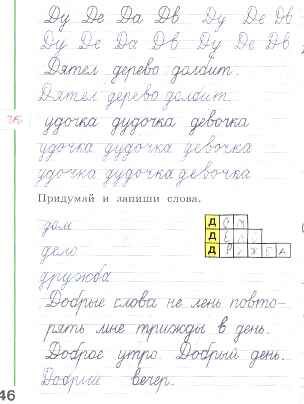 Ду Де Да Дв Ду Де Дв
Ду Де Да Дв Ду Де Дв
Дятел дерево долбит.
Дятел дерево долбит.
удочка дудочка девочка
удочка дудочка девочка
удочка дудочка девочка
Придумай и запиши слова.
дом
Д
дело
Д Е
Д Р У Ж Б А
дружба
Добрые слова не лень повто-
рять мне трижды в день.
Доброе утро. Добрый день.
Добрый вечер.
46